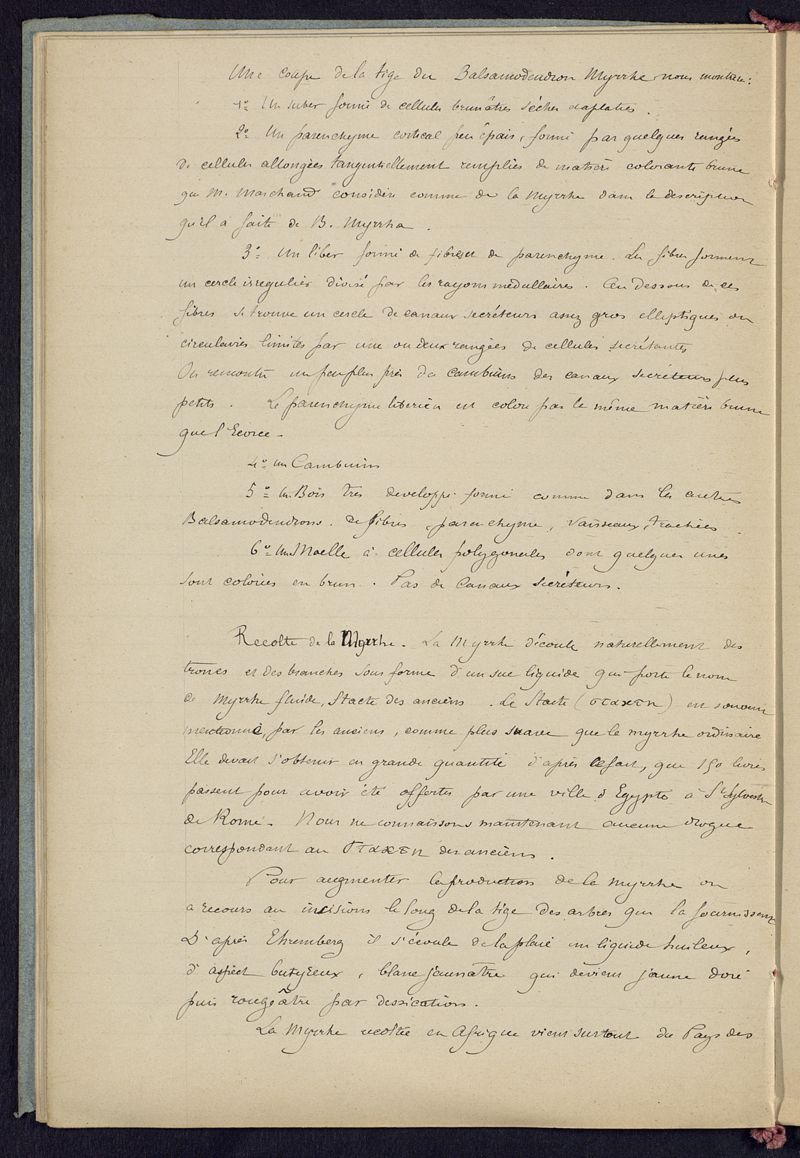 Une coupe de la tige du Balsamodendron Myrrha nous montre :
1° Un suber formé de cellules brunâtres sèches aplaties.
2° Un parenchyme cortical peu épais, formé par quelques rangées
de cellules allongées tangentiellement remplies de matière colorante brune
que M. Marchand considère comme de la Myrrhe dans la description
qu'il a faite de B. Myrrha.
3° Un liber formé de fibres et de parenchyme. Les fibres forment
un cercle irrégulier divisé par les rayons médullaires. Au dessous de ces
fibres se trouve un cercle de canaux secréteurs assez gros elliptiques ou
circulaires limités par une ou deux rangées de cellules secrétantes
On remontre un peu plus près du cambium des canaux secréteurs plus
petits. Le parenchyme libérien est coloré par la même matière brune
que l'Ecorce.
4° un Cambium
5° Un Bois très developpé formé comme dans les autres
Balsamodendrons. De fibres, parenchyme, vaisseaux, trachées.
6° Une Moelle à cellules polygonales dont quelques unes
sont colorées en brun. Pas de Canaux Secréteurs.
Recolte de la Myrrhe. La Myrrhe découle naturellement des
troncs et des branches sous forme d'un suc liquide qui porte le nom
de Myrrhe fluide, Stacte des anciens. Le Stacte (σταχτη) est souvent
mentionné, par les anciens, comme plus suave que la myrrhe ordinaire
Elle devait s'obtenir en grande quantité d'après le fait, que 150 livres
passent pour avoir été offertes par une ville d'Egypte à St Sylvestre
de Rome. Nous ne connaissons maintenant aucune drogue
correspondant au σταχτη des anciens.
Pour augmenter la production de la myrrhe on
a recours au incisions le long de la tige des arbres qui la fournissent
D'après Ehremberg il s'écoule de la plaie un liquide huileux,
d'aspect butyreux, blanc jaunâtre qui devient jaune doré
puis rougeâtre par dessication.
La Myrrhe recoltée en Afrique vient surtout du Pays des